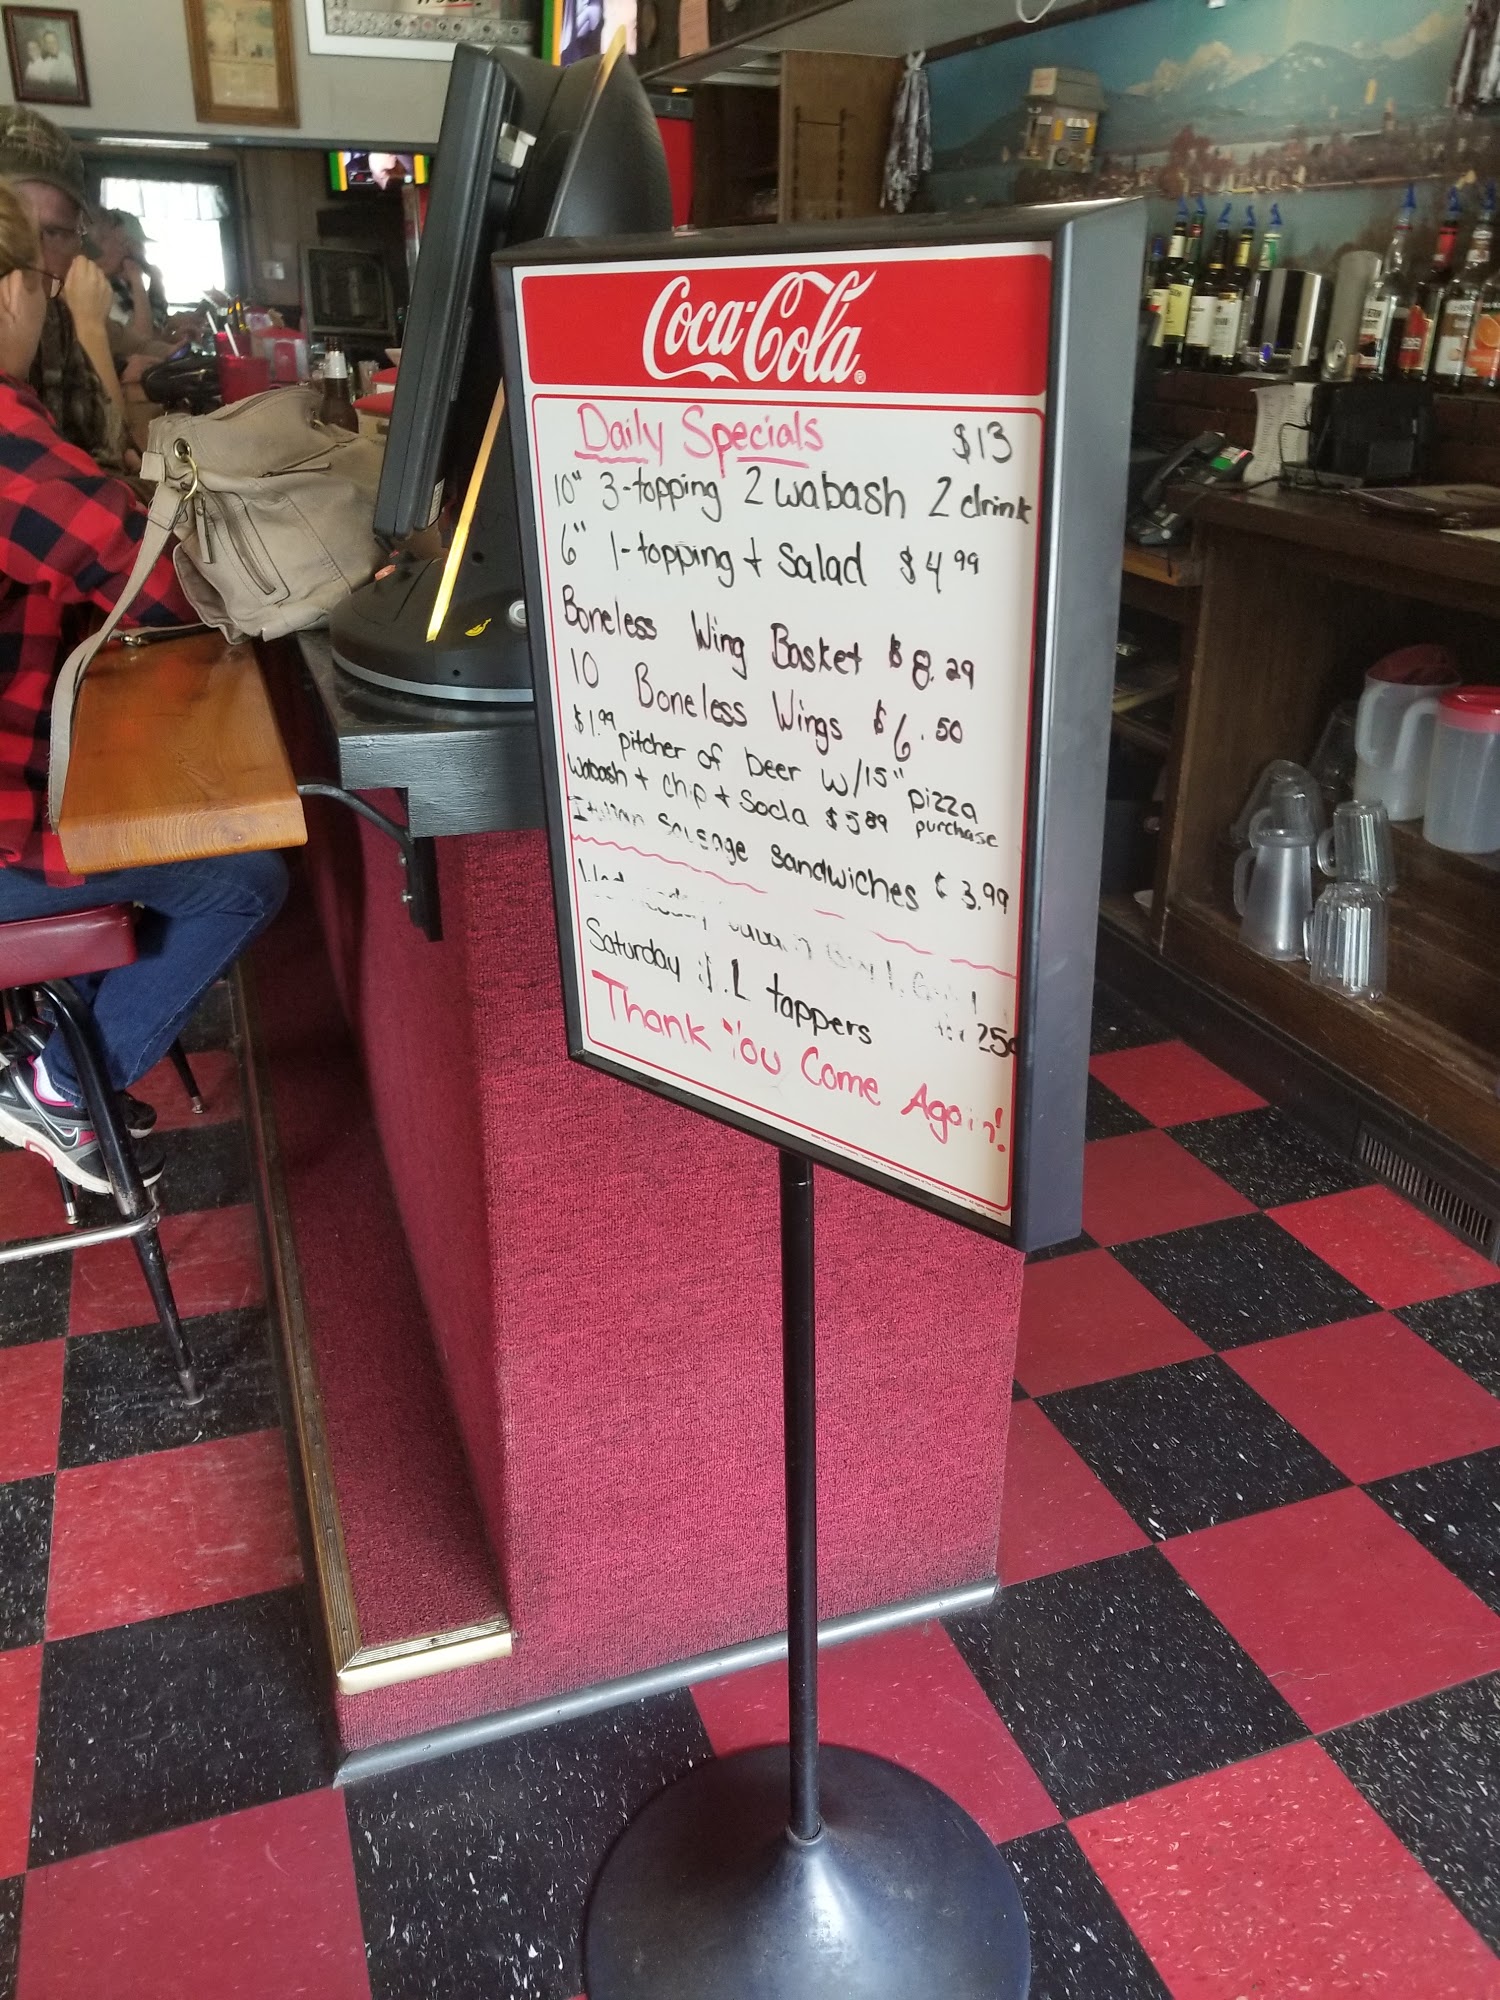 Coca-Cola®
Daily Specials $13
10" 3-topping 2 wabash 2 drink
6" 1-topping + Salad $4.99
Boneless Wing Basket $8.29
10 Boneless Wings $6.50
$1.99 pitcher of beer w/15" pizza purchase
Wabash + chip + Soda $5.89
Italian Sausage Sandwiches $3.99
Saturday $1 tappers
25¢
Thank You Come Again!